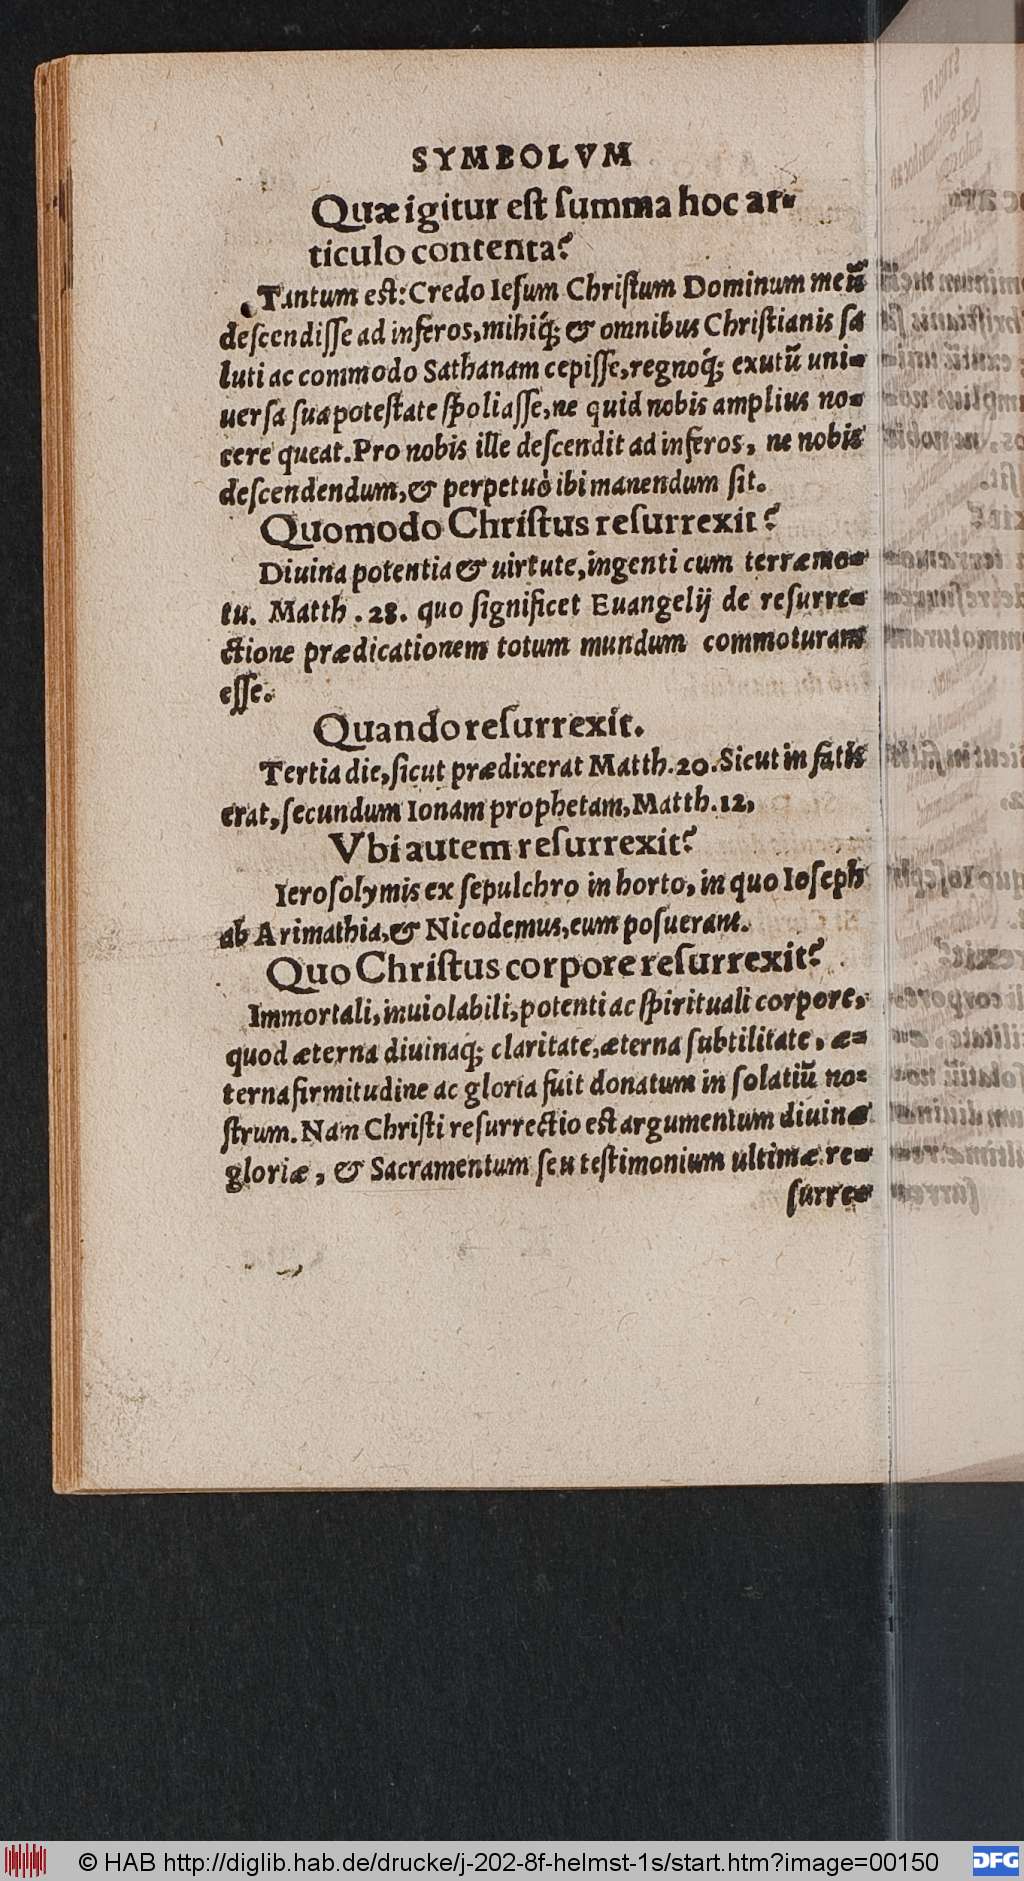 SYMBOLVM
Quæ igitur est summa hoc ar-
ticulo contenta?
Tantum est: Credo Iesum Christum Dominum meũ
descendisse ad inferos, mihiq́; & omnibus Christianis sa
luti ac commodo Sathanam cepisse, regnoq́; exutũ uni-
uersa sua potestate spoliasse, ne quid nobis amplius no-
cere queat. Pro nobis ille descendit ad inferos, ne nobis
descendendum, & perpetuò ibi manendum sit.
Quomodo Christus resurrexit?
Diuina potentia & uirtute, ingenti cum terræmo-
tu. Matth. 28. quo significet Euangelij de resurre-
ctione prædicationem totum mundum commoturam
esse.
Quando resurrexit.
Tertia die, sicut prædixerat Matth. 20. Sicut in fatis
erat, secundum Ionam prophetam, Matth. 12,
Vbi autem resurrexit?
Ierosolymis ex sepulchro in horto, in quo Ioseph
ab Arimathia, & Nicodemus, eum posuerant.
Quo Christus corpore resurrexit?
Immortali, inuiolabili, potenti ac spirituali corpore,
quod æterna diuinaq; claritate, æterna subtilitate, æ-
terna firmitudine ac gloria fuit donatum in solatiũ no-
strum. Nam Christi resurrectio est argumentum diuinæ
gloriæ, & Sacramentum seu testimonium ultimæ re-
surre-
© HAB http://diglib.hab.de/drucke/j-202-8f-helmst-1s/start.htm?image=00150
DFG